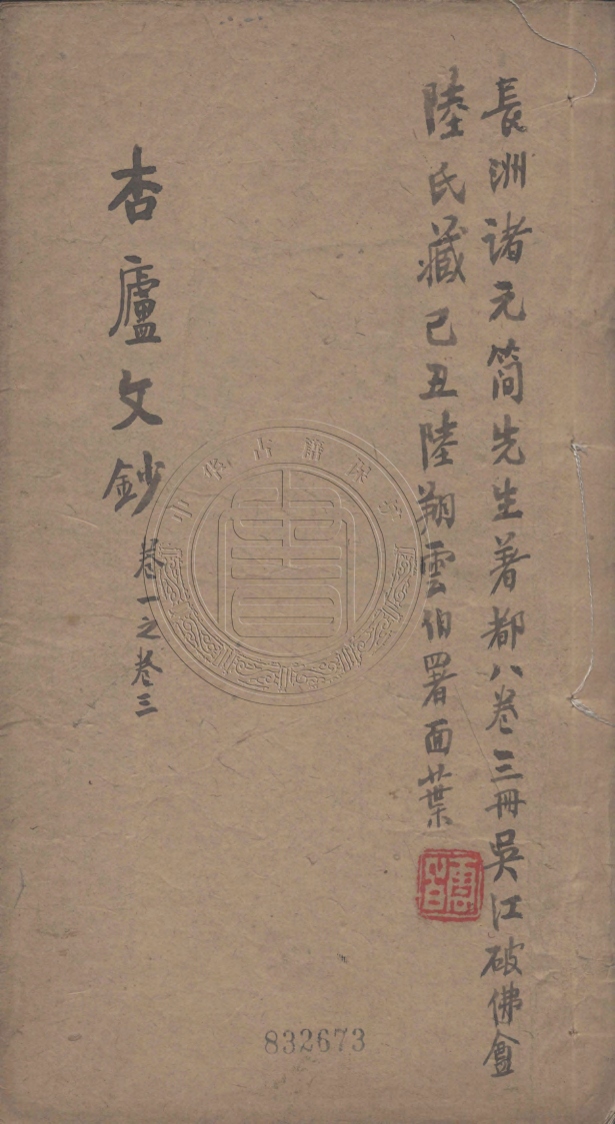 長洲诸元简先生著都八卷三冊吳江破佛盦
陸氏藏己丑陸翔雲伯署面葉
杏廬文鈔
卷一之卷三
832673